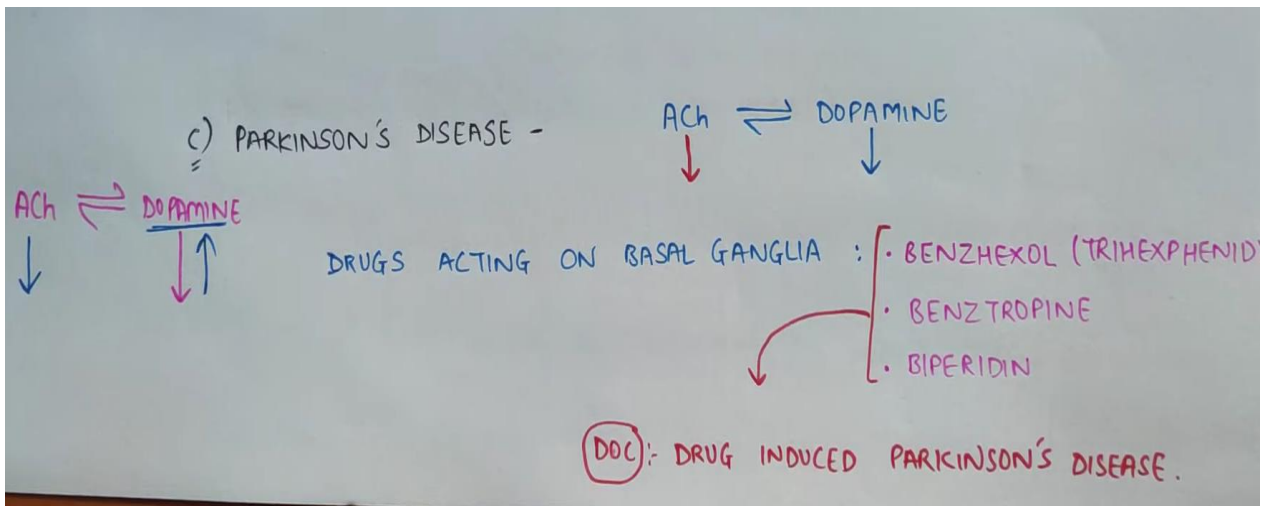 ACh ⇌ DOPAMINE
C) PARKINSON'S DISEASE -
ACh ⇌ DOPAMINE
DRUGS ACTING ON BASAL GANGLIA : • BENZHEXOL (TRIHEXPHENID
• BENZTROPINE
• BIPERIDIN
DOC:- DRUG INDUCED PARKINSON'S DISEASE.